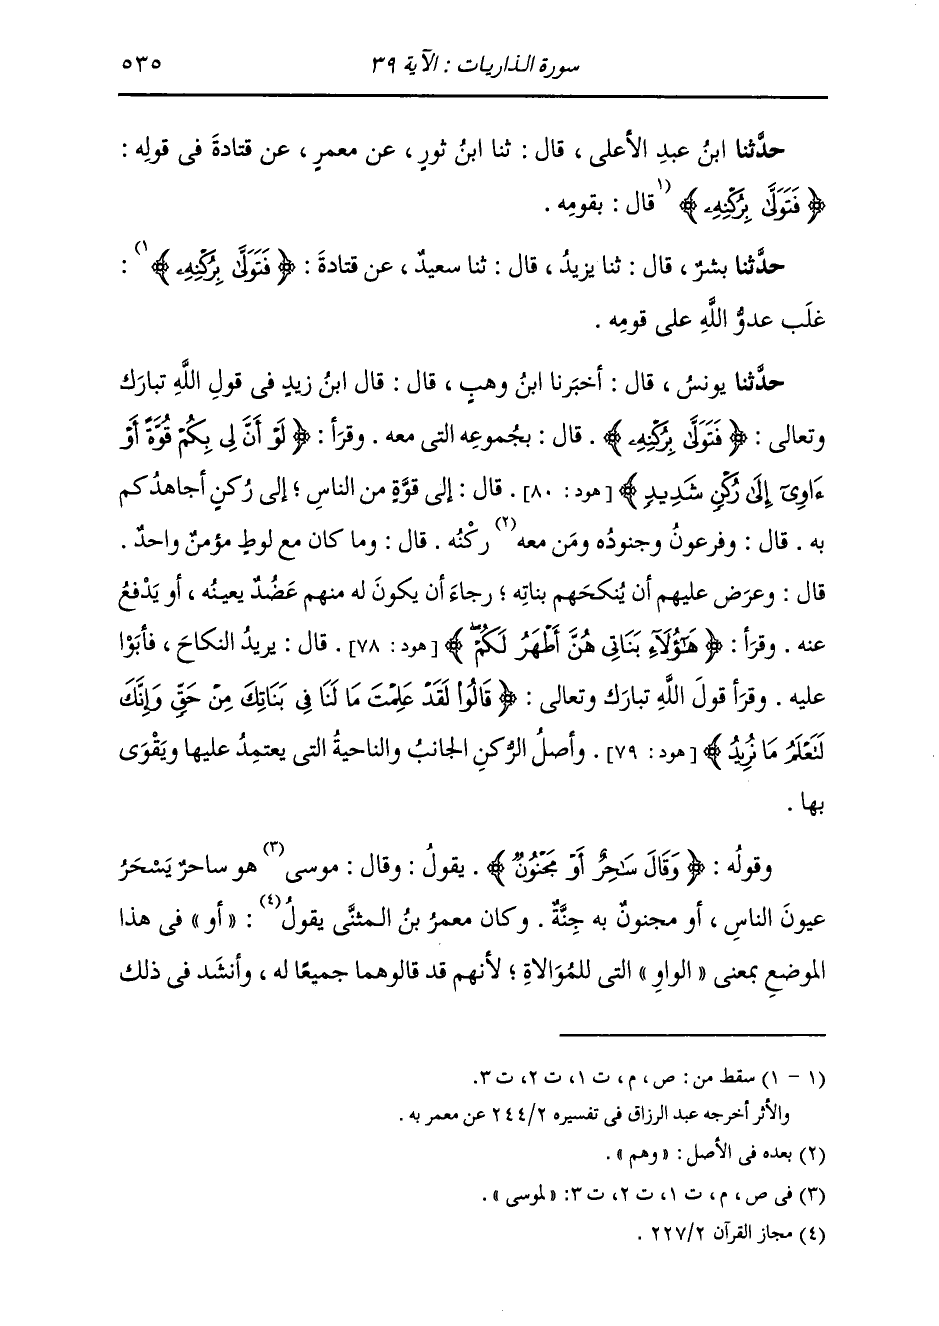 سورة الذاريات : الآية ٣٩
٥٣٥
حدَّثنا ابنُ عبدِ الأعلى ، قال : ثنا ابنُ ثورٍ ، عن معمرٍ ، عن قتادةَ فى قولِه :
﴿ فَتَوَلَّىٰ بِرُكْنِهِۦ ﴾ (١ قال : بقومِه .
حدَّثنا بشرٌ ، قال : ثنا يزيدُ ، قال : ثنا سعيدٌ ، عن قتادةَ : ﴿ فَتَوَلَّىٰ بِرُكْنِهِۦ ﴾ ١) :
غلَب عدوُّ اللَّهِ على قومِه .
حدَّثنا يونسُ ، قال : أخبَرنا ابنُ وهبٍ ، قال : قال ابنُ زيدٍ فى قولِ اللَّهِ تبارَك
وتعالى : ﴿ فَتَوَلَّىٰ بِرُكْنِهِۦ ﴾ . قال : بجُموعِه التى معه . وقرَأ : ﴿ لَوْ أَنَّ لِى بِكُمْ قُوَّةً أَوْ
ءَاوِىٓ إِلَىٰ رُكْنٍ شَدِيدٍ ﴾ [ هود : ٨٠] . قال : إلى قوَّةٍ من الناسِ ؛ إلى رُكنٍ أجاهدُكم
به . قال : وفرعونُ وجنودُه ومَن معه (٢) ركْنُه . قال : وما كان مع لوطٍ مؤمنٌ واحدٌ .
قال : وعرَض عليهم أن يُنكحَهم بناتِه ؛ رجاءَ أن يكونَ له منهم عَضُدٌ يعينُه ، أو يَدْفعُ
عنه . وقرَأ : ﴿ هَٰٓؤُلَآءِ بَنَاتِى هُنَّ أَطْهَرُ لَكُمْ ۖ ﴾ [ هود : ٧٨] . قال : يريدُ النكاحَ ، فأبَوْا
عليه . وقرَأ قولَ اللَّهِ تبارَك وتعالى : ﴿ قَالُوا۟ لَقَدْ عَلِمْتَ مَا لَنَا فِى بَنَاتِكَ مِنْ حَقٍّ وَإِنَّكَ
لَتَعْلَمُ مَا نُرِيدُ ﴾ [ هود : ٧٩] . وأصلُ الرُّكنِ الجانبُ والناحيةُ التى يعتمِدُ عليها ويَقْوَى
بها .
وقولُه : ﴿ وَقَالَ سَٰحِرٌ أَوْ مَجْنُونٌ ﴾ . يقولُ : وقال : موسى (٣) هو ساحرٌ يَسْحَرُ
عيونَ الناسِ ، أو مجنونٌ به جِنَّةٌ . وكان معمرُ بنُ المثنَّى يقولُ (٤) : « أو » فى هذا
الموضعِ بمعنى « الواوِ » التى للمُوَالاةِ ؛ لأنهم قد قالوهما جميعًا له ، وأنشَد فى ذلك
(١ - ١) سقط من : ص ، م ، ت ١، ت ٢، ت ٣.
والأثر أخرجه عبد الرزاق فى تفسيره ٢٤٤/٢ عن معمر به .
(٢) بعده فى الأصل : « وهم » .
(٣) فى ص ، م ، ت ١، ت ٢، ت ٣: « لموسى » .
(٤) مجاز القرآن ٢٢٧/٢ .